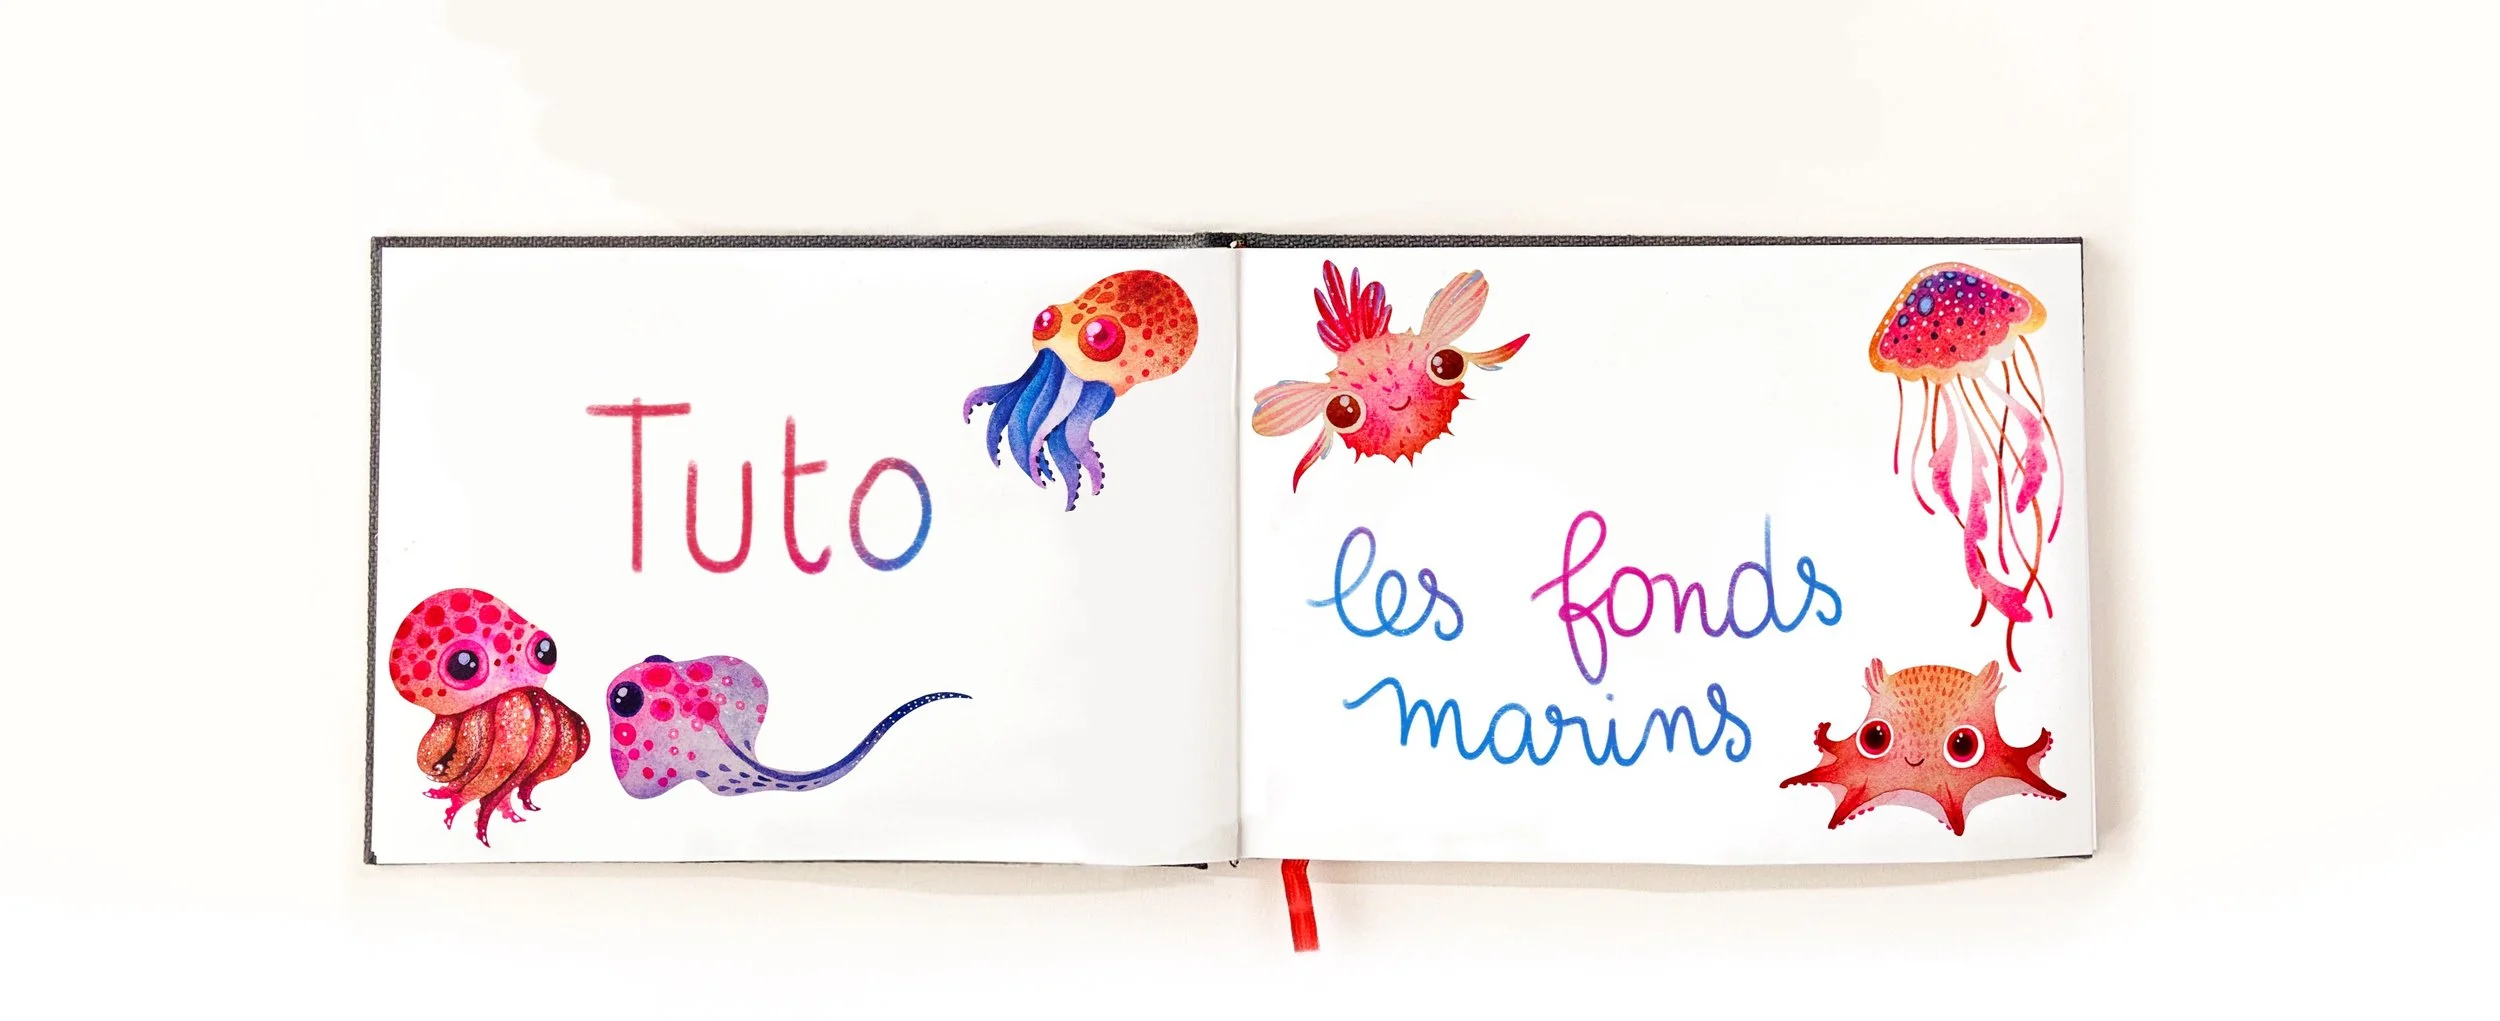 Tuto
les fonds
marins